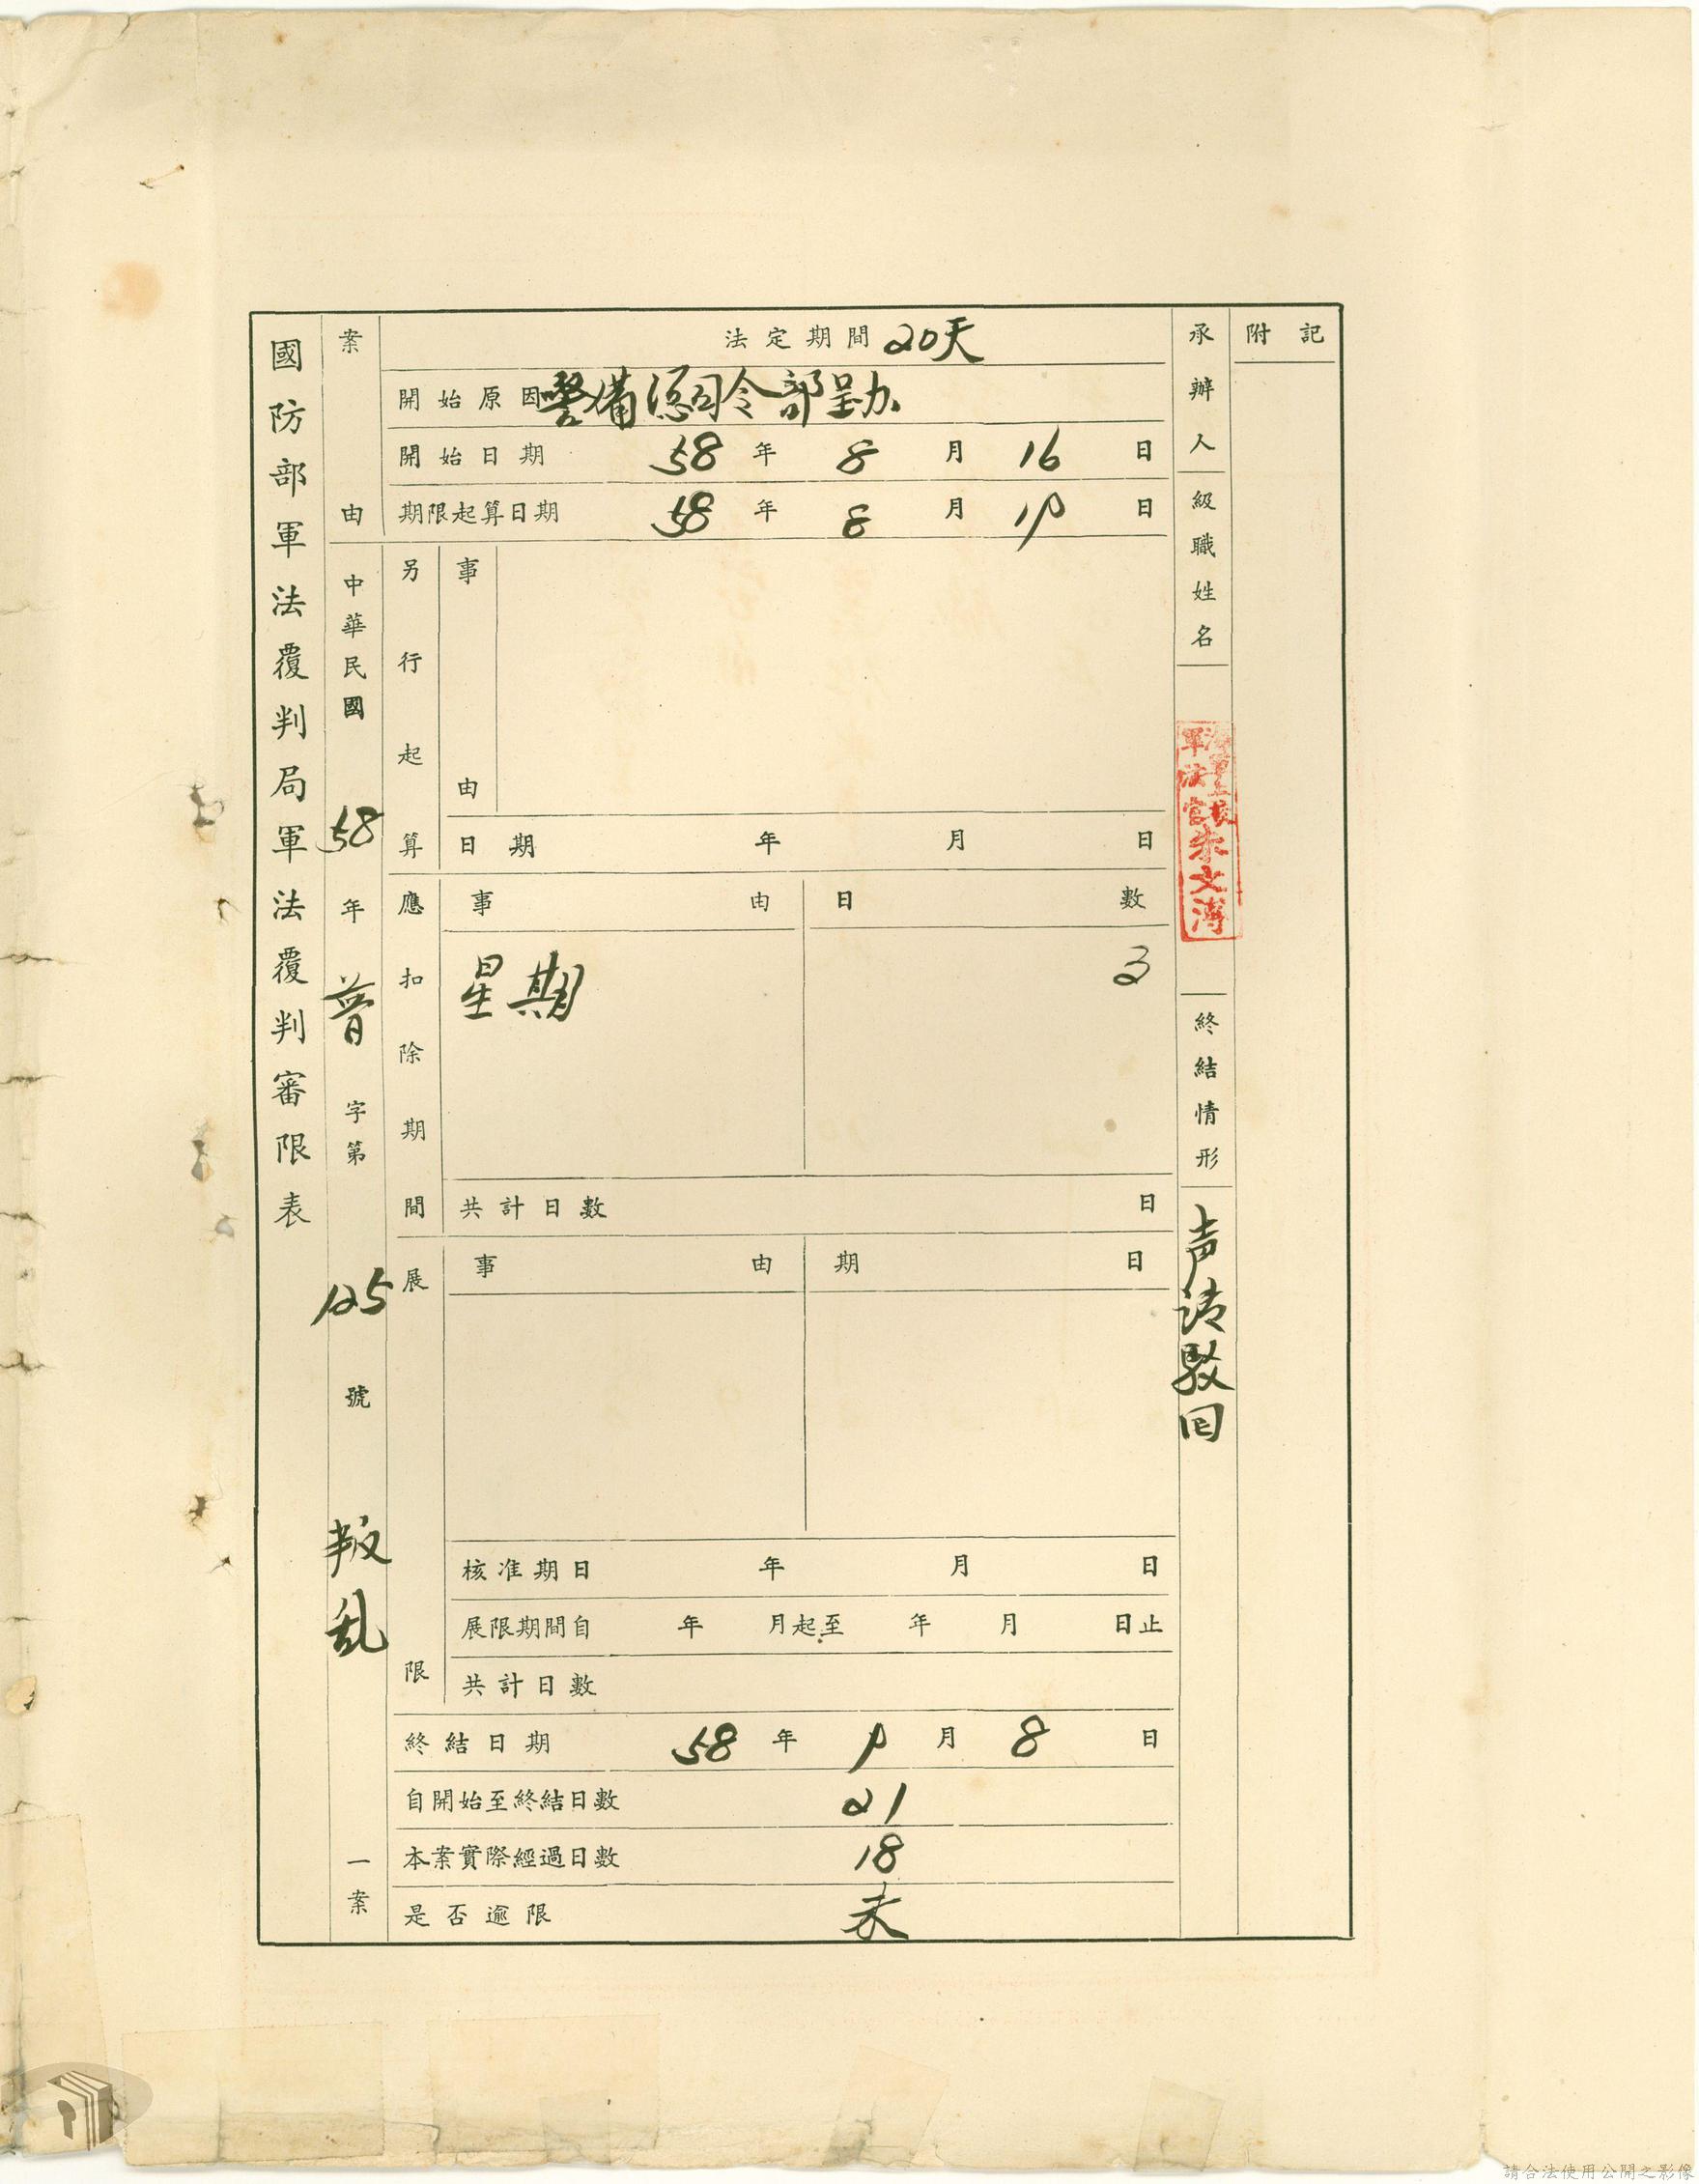 國防部軍法覆判局軍法覆判審限表
案由
中華民國58年普字第125號叛乱一案
法定期間 20天
開始原因
警備總司令部呈
開始日期 58年8月16日
期限起算日期 58年8月19日
另行起算
事由
日期 年 月 日
應扣除期間
事由 日數
星期 3
共計日數 日
展限
事由 期日
核准期日 年 月 日
展限期間自 年 月起至 年 月 日止
共計日數
終結日期 58年9月8日
自開始至終結日數 21
本案實際經過日數 18
是否逾限 未
承辦人級職姓名
軍法官
朱文溥
終結情形
声請駁回
附記
請合法使用公開之影像